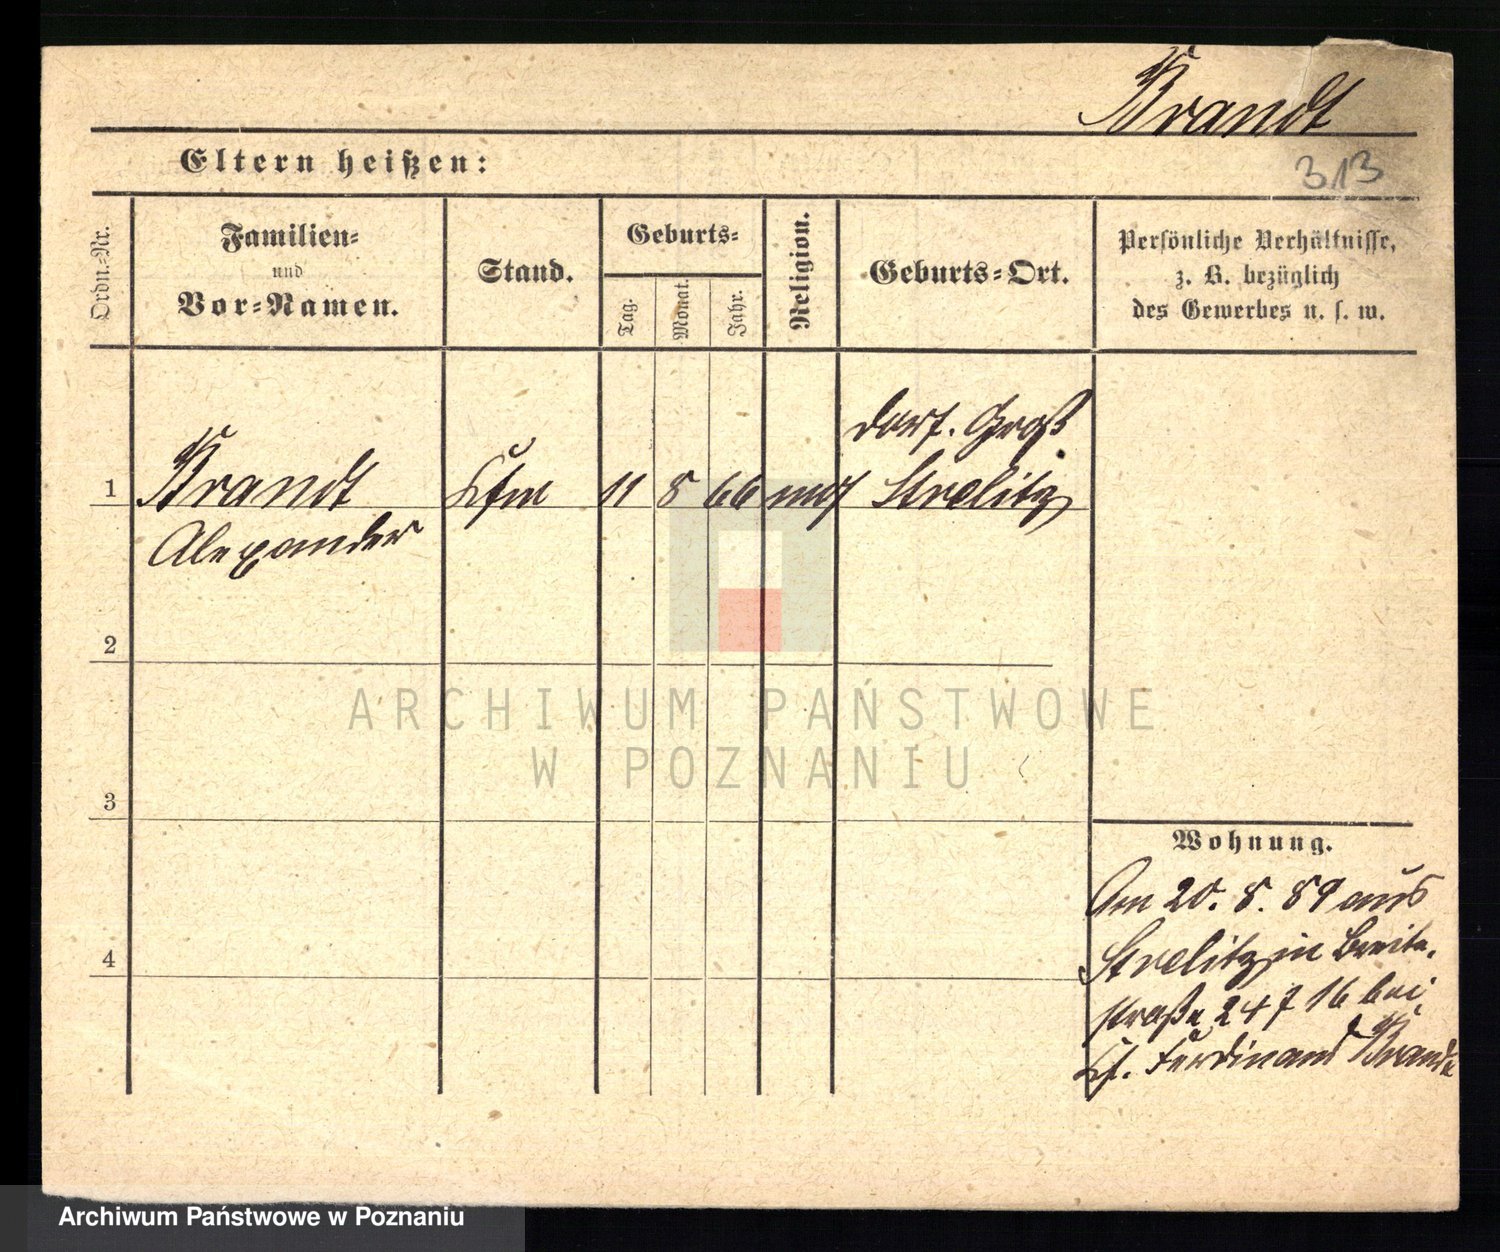 Brandt
Eltern heißen:
313
Ordn.-Nr.
Familien-
und
Vor-Namen.
Stand.
Geburts-
Tag.
Monat.
Jahr.
Religion.
Geburts-Ort.
Persönliche Verhältnisse,
z. B. bezüglich
des Gewerbes u. s. w.
dorf. Groß
1 Brandt Kfm 11 8 66 Strelitz
Alexander
2
ARCHIWUM PAŃSTWOWE
W POZNANIU
3
Wohnung.
Am 20. 8. 89 aus
Strelitz in Breite-
4
straße 24 16 bei
Kf. Ferdinand Brandt
Archiwum Państwowe w Poznaniu